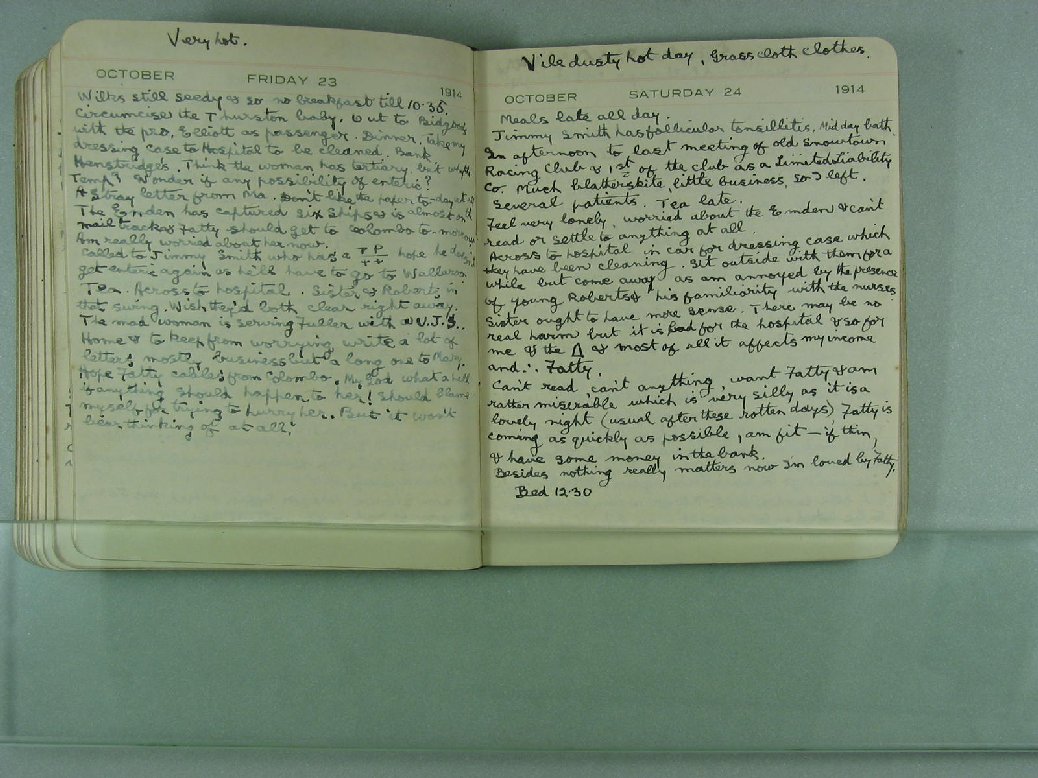 Very hot.
OCTOBER FRIDAY 23 1914
Wilks still seedy & so no breakfast till 10.35,
Circumcise the Thurston baby. Out to
with the pro, Elliott as passenger. Dinner. Take my
dressing case to Hospital to be cleaned. Bank
Think the woman has tertiary but why the
Temp? Wonder if any possibility of enteric?
A stray letter from Ma. Don't like the paper today at all
The Emden has captured six ships & is almost on the
mail track & Fatty should get to Colombo to-morrow
Am really worried about her now.
Called to Jimmy Smith who has a T P hope he doesn't
++
get enteric again as he'll have to go to Wallaroo
Tea. Across to hospital. Sister & Roberts in
that swing. Wish they'd both clear right away.
The mad woman is serving Fuller with a U.J.S..
Home & to keep from worrying write a lot of
letters mostly business but a long one to Mary.
Hope Fatty cables from Colombo. My God what a hell
if anything should happen to her! Should blame
myself for trying to hurry her. But it won't
bear thinking of at all.
Vile dusty hot day, Grass cloth clothes.
OCTOBER SATURDAY 24 1914
Meals late all day.
Jimmy Smith has follicular tonsillitis. Mid day bath
In afternoon to last meeting of old Snowtown
Racing Club & 1st of the club as a Limited Liability
Co. Much blatherskite, little business, so I left.
Several patients. Tea late.
Feel very lonely, worried about the Emden & can't
read or settle to anything at all.
Across to hospital in car for dressing case which
they have been cleaning. Sit outside with them for a
while but come away as am annoyed by the presence
of young Roberts & his familiarity with the nurses.
Sister ought to have more sense. There may be no
real harm but it is bad for the hospital & so for
me & the Δ & most of all it affects my income
and ∴ Fatty.
Can't read, can't anything, want Fatty & am
rather miserable which is very silly as it is a
lovely night (usual after these rotten days) Fatty is
coming as quickly as possible, am fit — if thin,
& have some money in the bank.
Besides nothing really matters now I'm loved by Fatty.
Bed 12.30